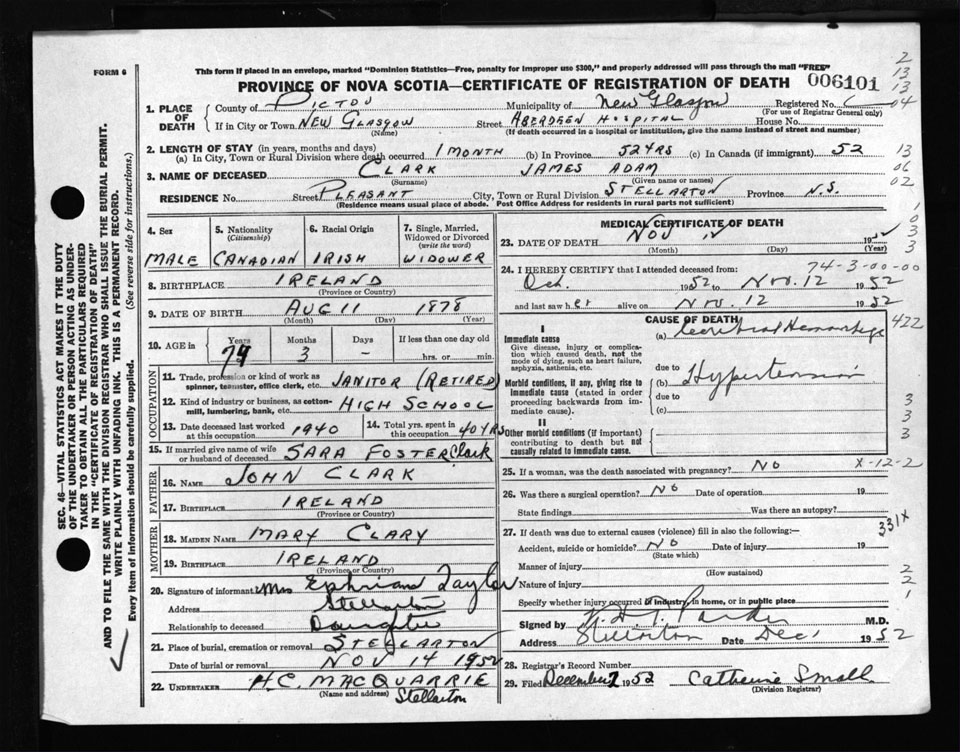 FORM 6
This form if placed in an envelope, marked "Dominion Statistics—Free, penalty for improper use $300," and properly addressed will pass through the mail "FREE"
PROVINCE OF NOVA SCOTIA—CERTIFICATE OF REGISTRATION OF DEATH 006101
2
13
13
04
13
06
02
1. PLACE OF DEATH County of PICTOU Municipality of New Glasgow Registered No.
(For use of Registrar General only)
If in City or Town NEW GLASGOW Street ABERDEEN HOSPITAL House No.
(Name) (If death occurred in a hospital or institution, give the name instead of street and number)
2. LENGTH OF STAY (in years, months and days)
(a) In City, Town or Rural Division where death occurred 1 MONTH (b) In Province 52 YRS (c) In Canada (if immigrant) 52
3. NAME OF DECEASED CLARK JAMES ADAM
(Surname) (Given name or names)
RESIDENCE No. Street PLEASANT City, Town or Rural Division STELLARTON Province N.S.
(Residence means usual place of abode. Post Office Address for residents in rural parts not sufficient)
SEC. 46—VITAL STATISTICS ACT MAKES IT THE DUTY
OF THE UNDERTAKER OR PERSON ACTING AS UNDER-
TAKER TO OBTAIN ALL THE PARTICULARS REQUIRED
IN THE "CERTIFICATE OF REGISTRATION OF DEATH"
AND TO FILE THE SAME WITH THE DIVISION REGISTRAR WHO SHALL ISSUE THE BURIAL PERMIT.
WRITE PLAINLY WITH UNFADING INK. THIS IS A PERMANENT RECORD.
Every item of information should be carefully supplied. (See reverse side for instructions.)
4. Sex MALE
5. Nationality (Citizenship) CANADIAN
6. Racial Origin IRISH
7. Single, Married, Widowed or Divorced (write the word) WIDOWER
8. BIRTHPLACE IRELAND
(Province or Country)
9. DATE OF BIRTH AUG 11 1878
(Month) (Day) (Year)
10. AGE in Years 74 Months 3 Days – If less than one day old hrs. or min.
OCCUPATION
11. Trade, profession or kind of work as spinner, teamster, office clerk, etc. JANITOR (RETIRED)
12. Kind of industry or business, as cotton-mill, lumbering, bank, etc. HIGH SCHOOL
13. Date deceased last worked at this occupation 1940
14. Total yrs. spent in this occupation 40 YRS
15. If married give name of wife or husband of deceased SARA FOSTER Clark
FATHER
16. NAME JOHN CLARK
17. BIRTHPLACE IRELAND
(Province or Country)
MOTHER
18. MAIDEN NAME MARY CLARY
19. BIRTHPLACE IRELAND
(Province or Country)
20. Signature of informant Mrs Ephriam Taylor
Address Stellarton
Relationship to deceased Daughter
21. Place of burial, cremation or removal STELLARTON
Date of burial or removal NOV 14 1952
22. UNDERTAKER H.C. MACQUARRIE
(Name and address) Stellarton
MEDICAL CERTIFICATE OF DEATH
23. DATE OF DEATH NOV 12 1952
(Month) (Day) (Year)
24. I HEREBY CERTIFY that I attended deceased from: 74-3-00-00
Oct. 1952 to Nov. 12 1952
and last saw her alive on Nov. 12 1952
CAUSE OF DEATH
I
Immediate cause
Give disease, injury or complication which caused death, not the mode of dying, such as heart failure, asphyxia, asthenia, etc.
(a) Cerebral Hemorrhage 422
due to
Morbid conditions, if any, giving rise to immediate cause (stated in order proceeding backwards from immediate cause).
(b) Hypertension
due to
(c)
II
Other morbid conditions (if important) contributing to death but not causally related to immediate cause.
3
3
3
25. If a woman, was the death associated with pregnancy? NO X-12-2
26. Was there a surgical operation? NO Date of operation 19
State findings Was there an autopsy?
27. If death was due to external causes (violence) fill in also the following:— 331X
Accident, suicide or homicide? NO Date of injury 19
(State which)
Manner of injury
(How sustained)
Nature of injury
2
2
1
Specify whether injury occurred in industry, in home, or in public place
Signed by Parker M.D.
Address Stellarton Date Dec 1 1952
28. Registrar's Record Number
29. Filed December 1952 Catherine Small
(Division Registrar)